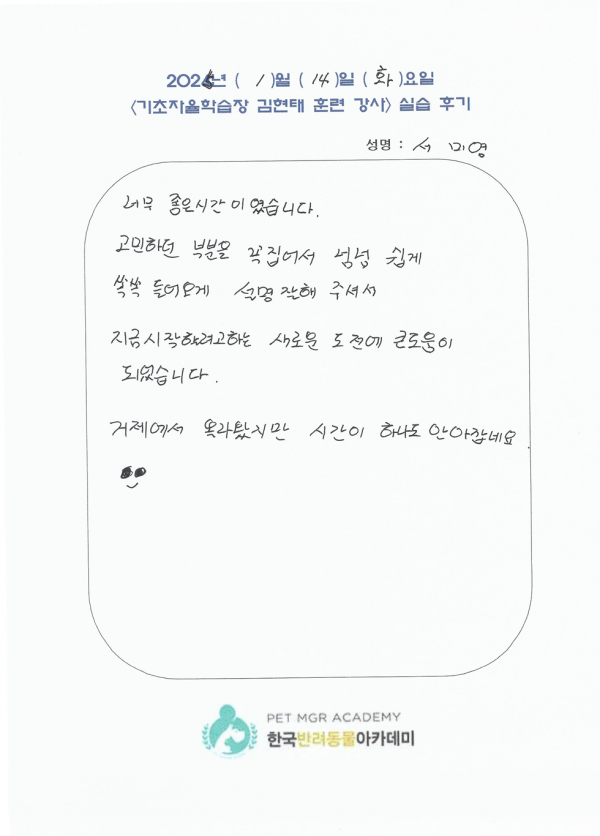 2025년 ( 1 )월 ( 14 )일 ( 화 )요일
<기초자율학습장 김현태 훈련 강사> 실습 후기
성명 : 서 미영
너무 좋은시간 이였습니다.
고민하던 부분을 꼭집어서 넘넘 쉽게
쏙쏙 들어오게 설명 잘해 주셔서
지금시작하려고하는 새로운 도전에 큰도움이
되었습니다.
거제에서 올라왔지만 시간이 하나도 안아깝네요.
PET MGR ACADEMY
한국반려동물아카데미